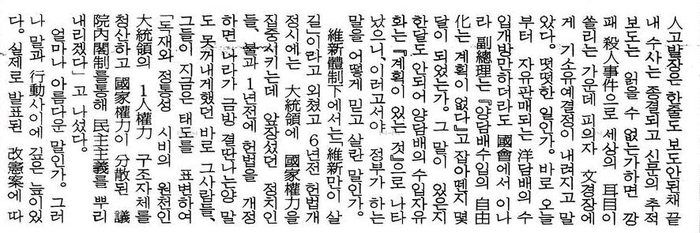 人고발장은 한줄도 안보도된채 끝
내 수사는 종결되고 신문의 추적
보도는 읽을 수 없는가하면 깡
패 殺人事件으로 세상의 耳目이
쏠리는 가운데 피의자 文경장에
게 기소유예결정이 내려지고 말
았다. 떳떳한 일인가. 바로 오늘
부터 자유판매되는 洋담배의 수
입개방만하더라도 國會에서 이나
라 副總理는 『양담배수입의 自由
化는 계획이 없다』고 잡아뗀지 몇
달이 되었는가. 그 말이 있은지
한달도 안되어 양담배의 수입자유
화는 『계획이 있는 것』으로 나타
났으니, 이러고서야 정부가 하는
말을 어떻게 믿고 살란 말인가.
維新體制下에서는 「維新만이 살
길」이라고 외쳤고 6년전 헌법개
정시에는 大統領에 國家權力을
집중시키는데 앞장섰던 정치인
들, 불과 1년전에 헌법을 개정
하면 나라가 금방 결딴나는양 말
도 못꺼내게했던 바로 그사람들,
그들이 지금은 태도를 표변하여
「독재와 정통성 시비의 원천인
大統領의 1人權力 구조자체를
청산하고 國家權力이 分散된 議
院內閣制를통해 民主主義를 뿌리
내리겠다」고 나섰다.
얼마나 아름다운 말인가. 그러
나 말과 行動사이에 깊은 늪이있
다. 실제로 발표된 改憲案에 따